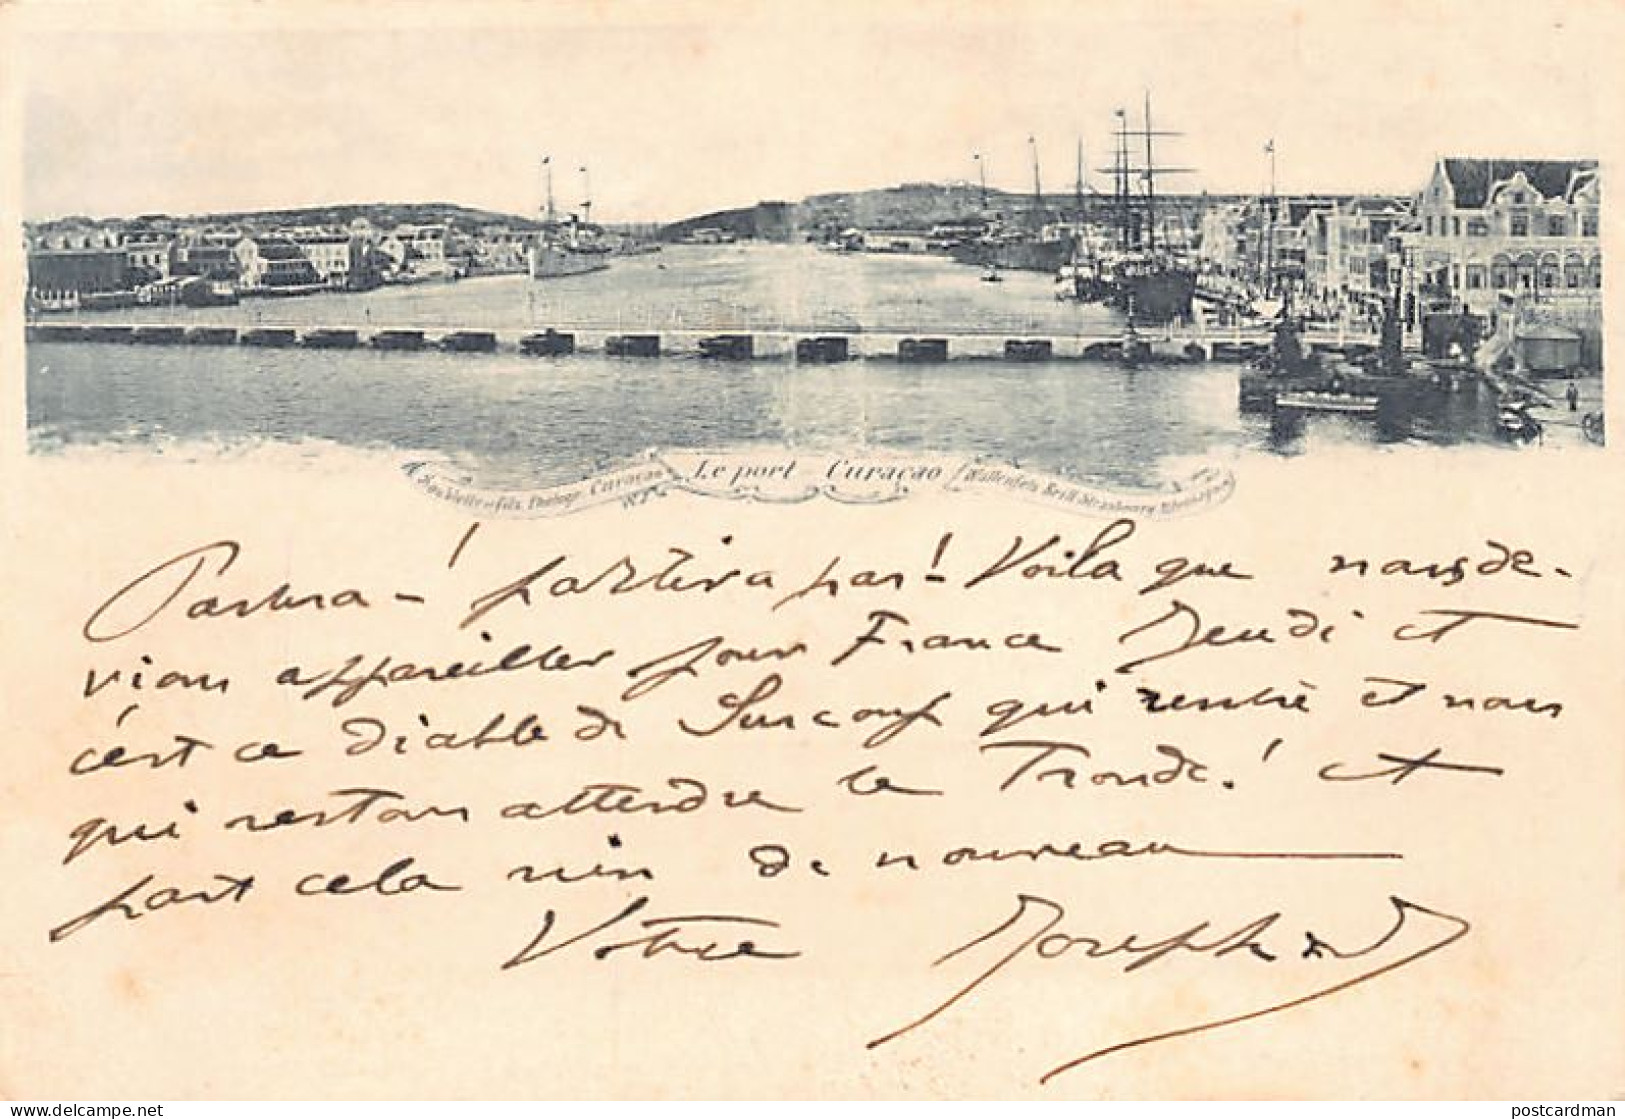 Soublette et fils Photogr. Curaçao
Le port - Curaçao
Strasbourg
Partira - ! partira pas ! Voila que nous de-
vions appareiller pour France Jeudi et
c'est ce diable de Surcouf qui rentre et nous
qui restons attendre le Tronde ! et
part cela rien de nouveau
Votre Joseph
postcardman